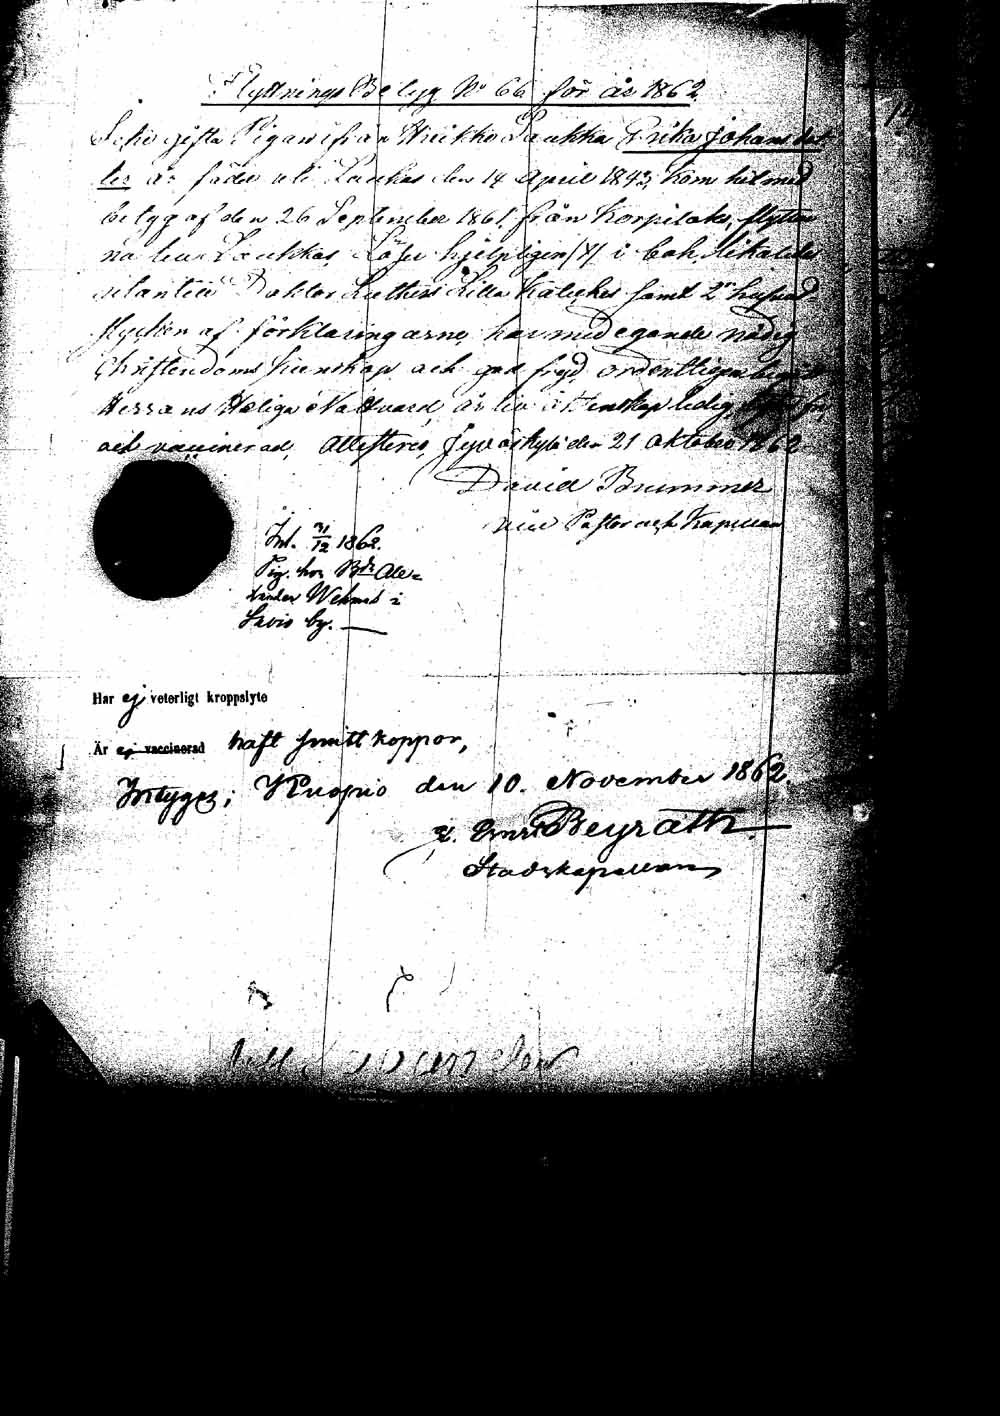 Flyttnings Betyg No 66 för år 1862
gifta Pigan ifrån Heikko Laukka Erika Johansdot
ter är född uti Laukas den 14 April 1843, kom hit med
betyg af den 26 September 1861, från Korpilaks, flyttar
Laukkas, Läser hjelpligen i bok,
Doktor Lutheri Lilla Kateches samt 2ne
stycken af förklaringarne, har med egande nödig
Christendoms kunskap och god frejd, ordentligen begått
Herrans Heliga Nattvard, är till äktenskap ledig,
och vaccinerad, Attesteras, Jyväskylä den 21 Oktober 1862
David Brummer
vice Pastor och Kapellan
Int. 31/12 1862.
Pig. hos Bde Ale-
xander
Savio by.
Har ej veterligt kroppslyte
Är ej vaccinerad haft smittkoppor,
Intygas; Kuopio den 10. November 1862.
Beyrath
Stadskapellan